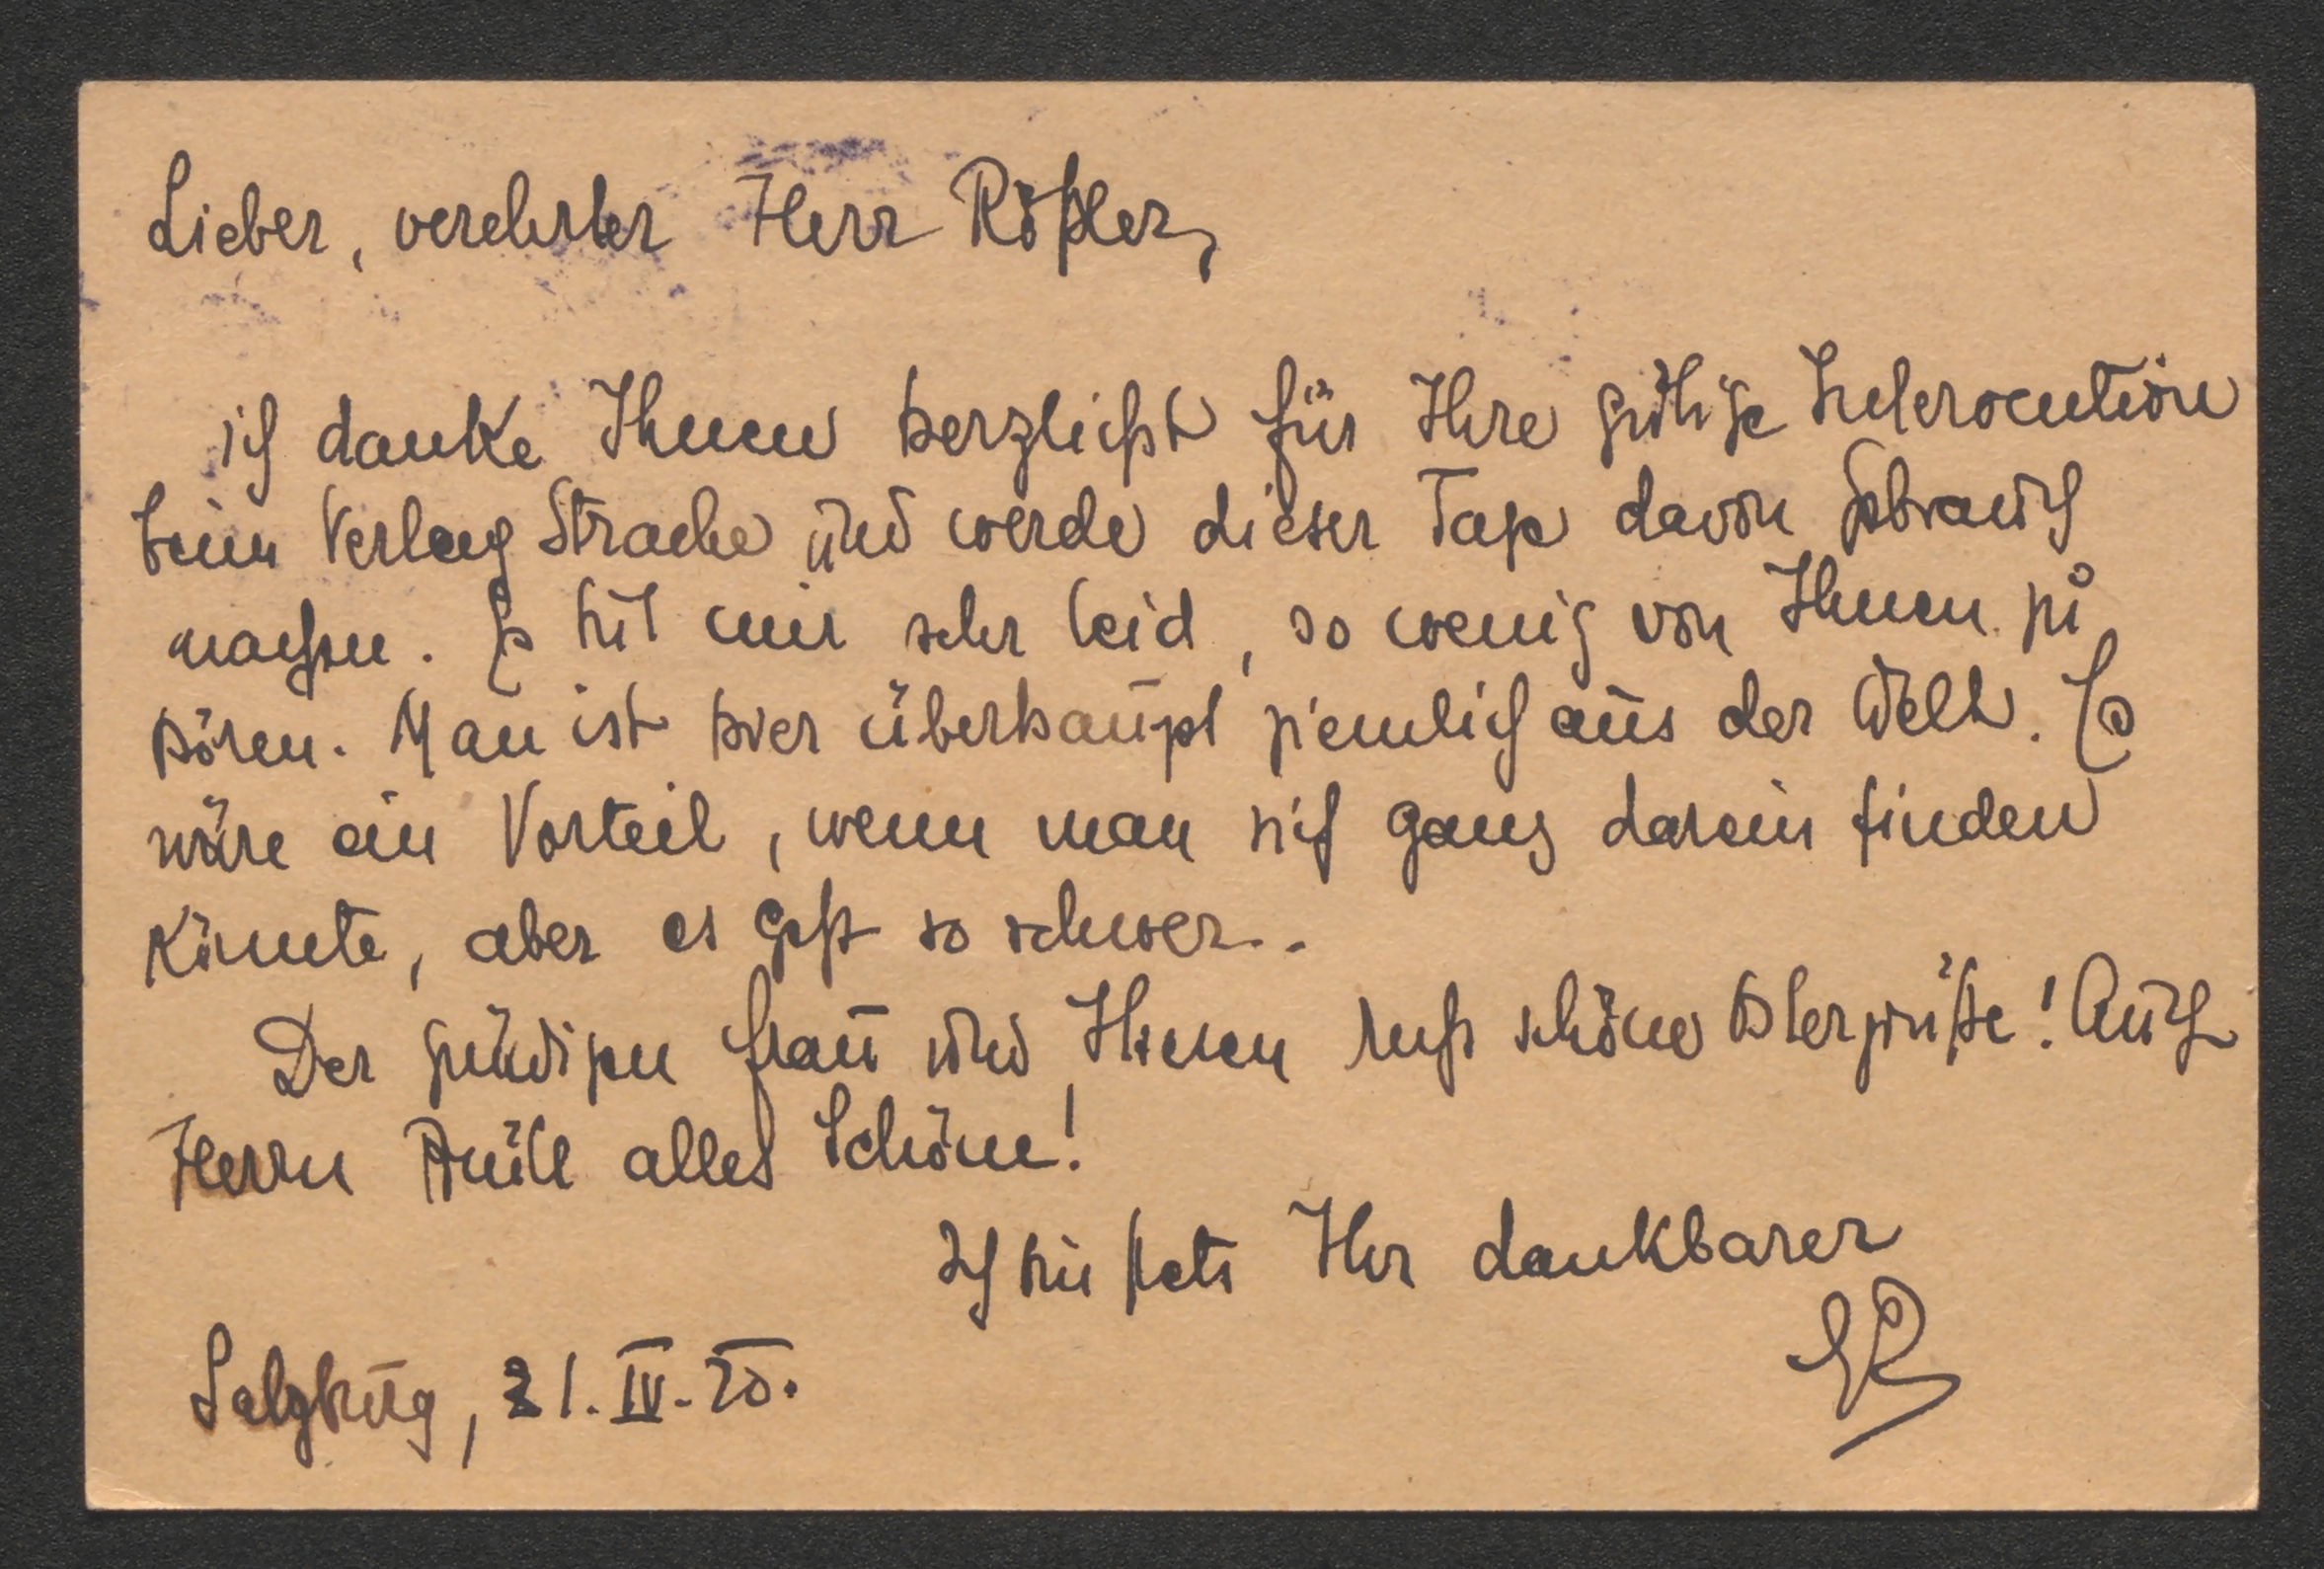 Lieber, verehrter Herr Rößler,
ich danke Ihnen herzlichst für Ihre gütige Interocution
beim Verlag Strache und werde dieser Tage davon Gebrauch
machen. Es tut mir sehr leid, so wenig von Ihnen zu
hören. Man ist hier überhaupt ziemlich aus der Welt. Es
wäre ein Vorteil, wenn man sich ganz darein finden
könnte, aber es geht so schwer..
Der gnädigen Frau und Ihnen recht schöne Ostergrüße! Auch
Herrn alles Schöne!
Ich bin stets Ihr dankbarer
Salzburg, 21. IV. 20.